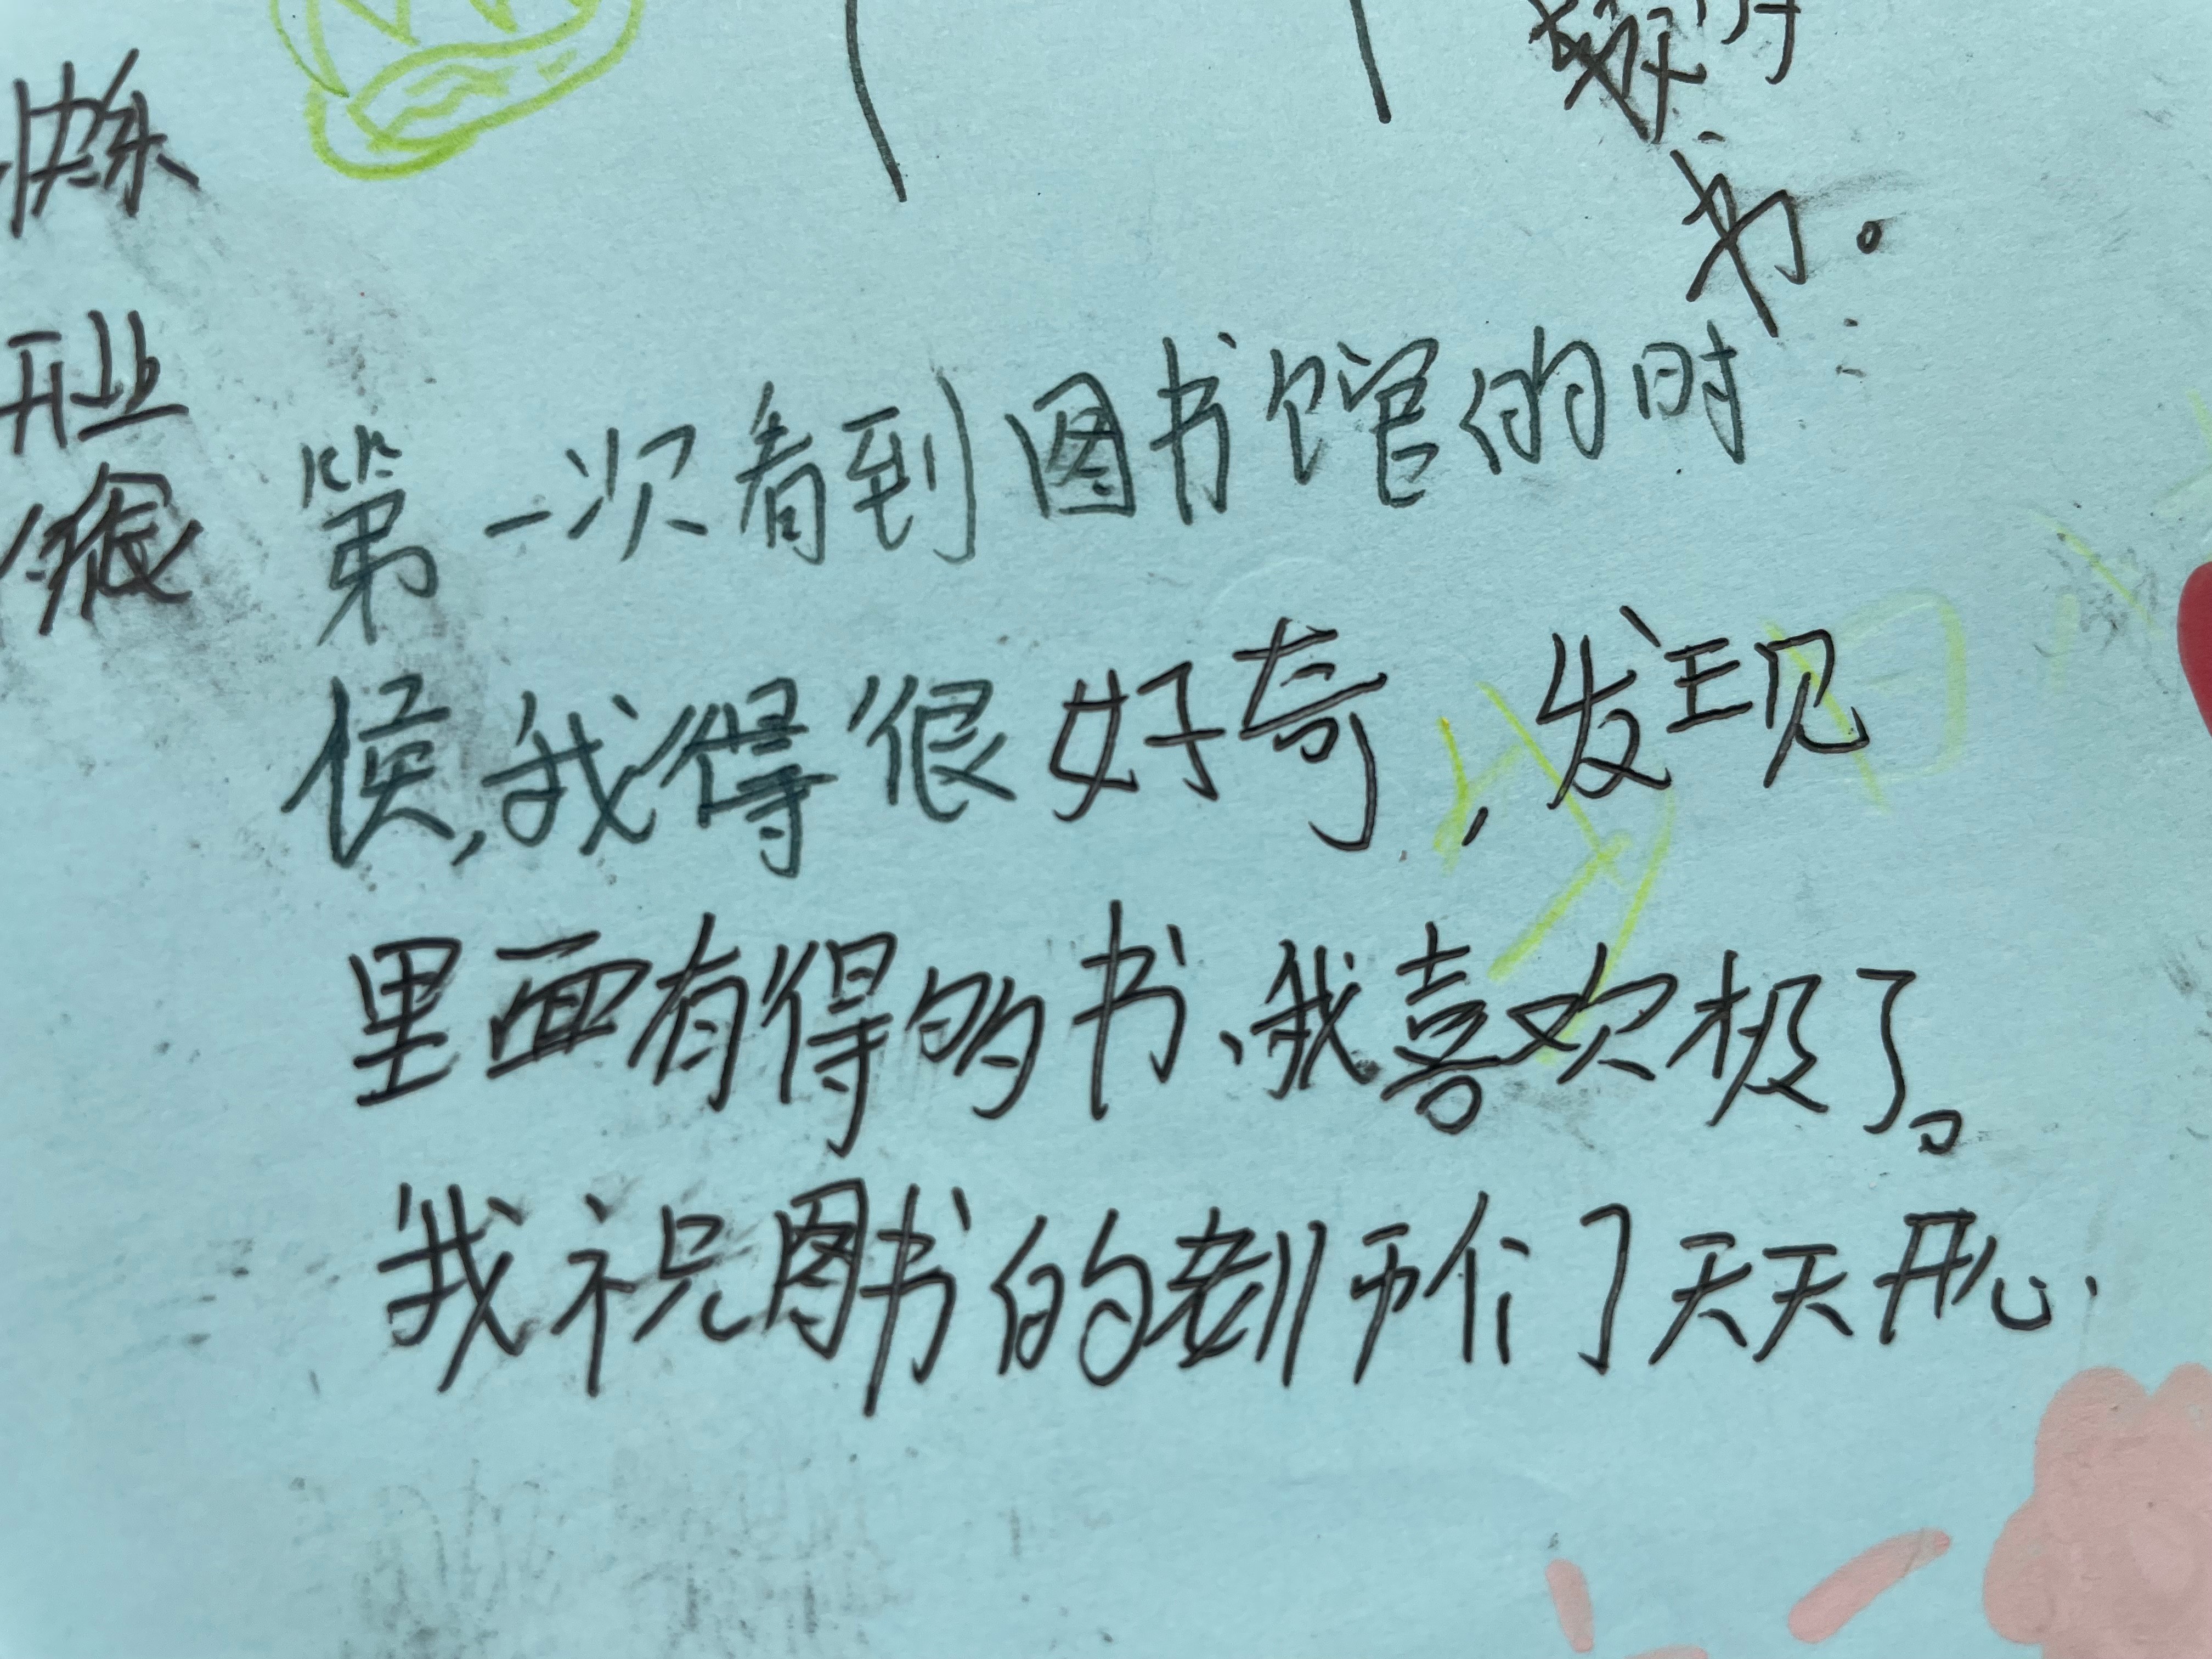 书。
快乐
业
很
第一次看到图书馆的时
候,我得很好奇,发现
里面有得多书、我喜欢极了。
我祝图书的老师们了天天开心.